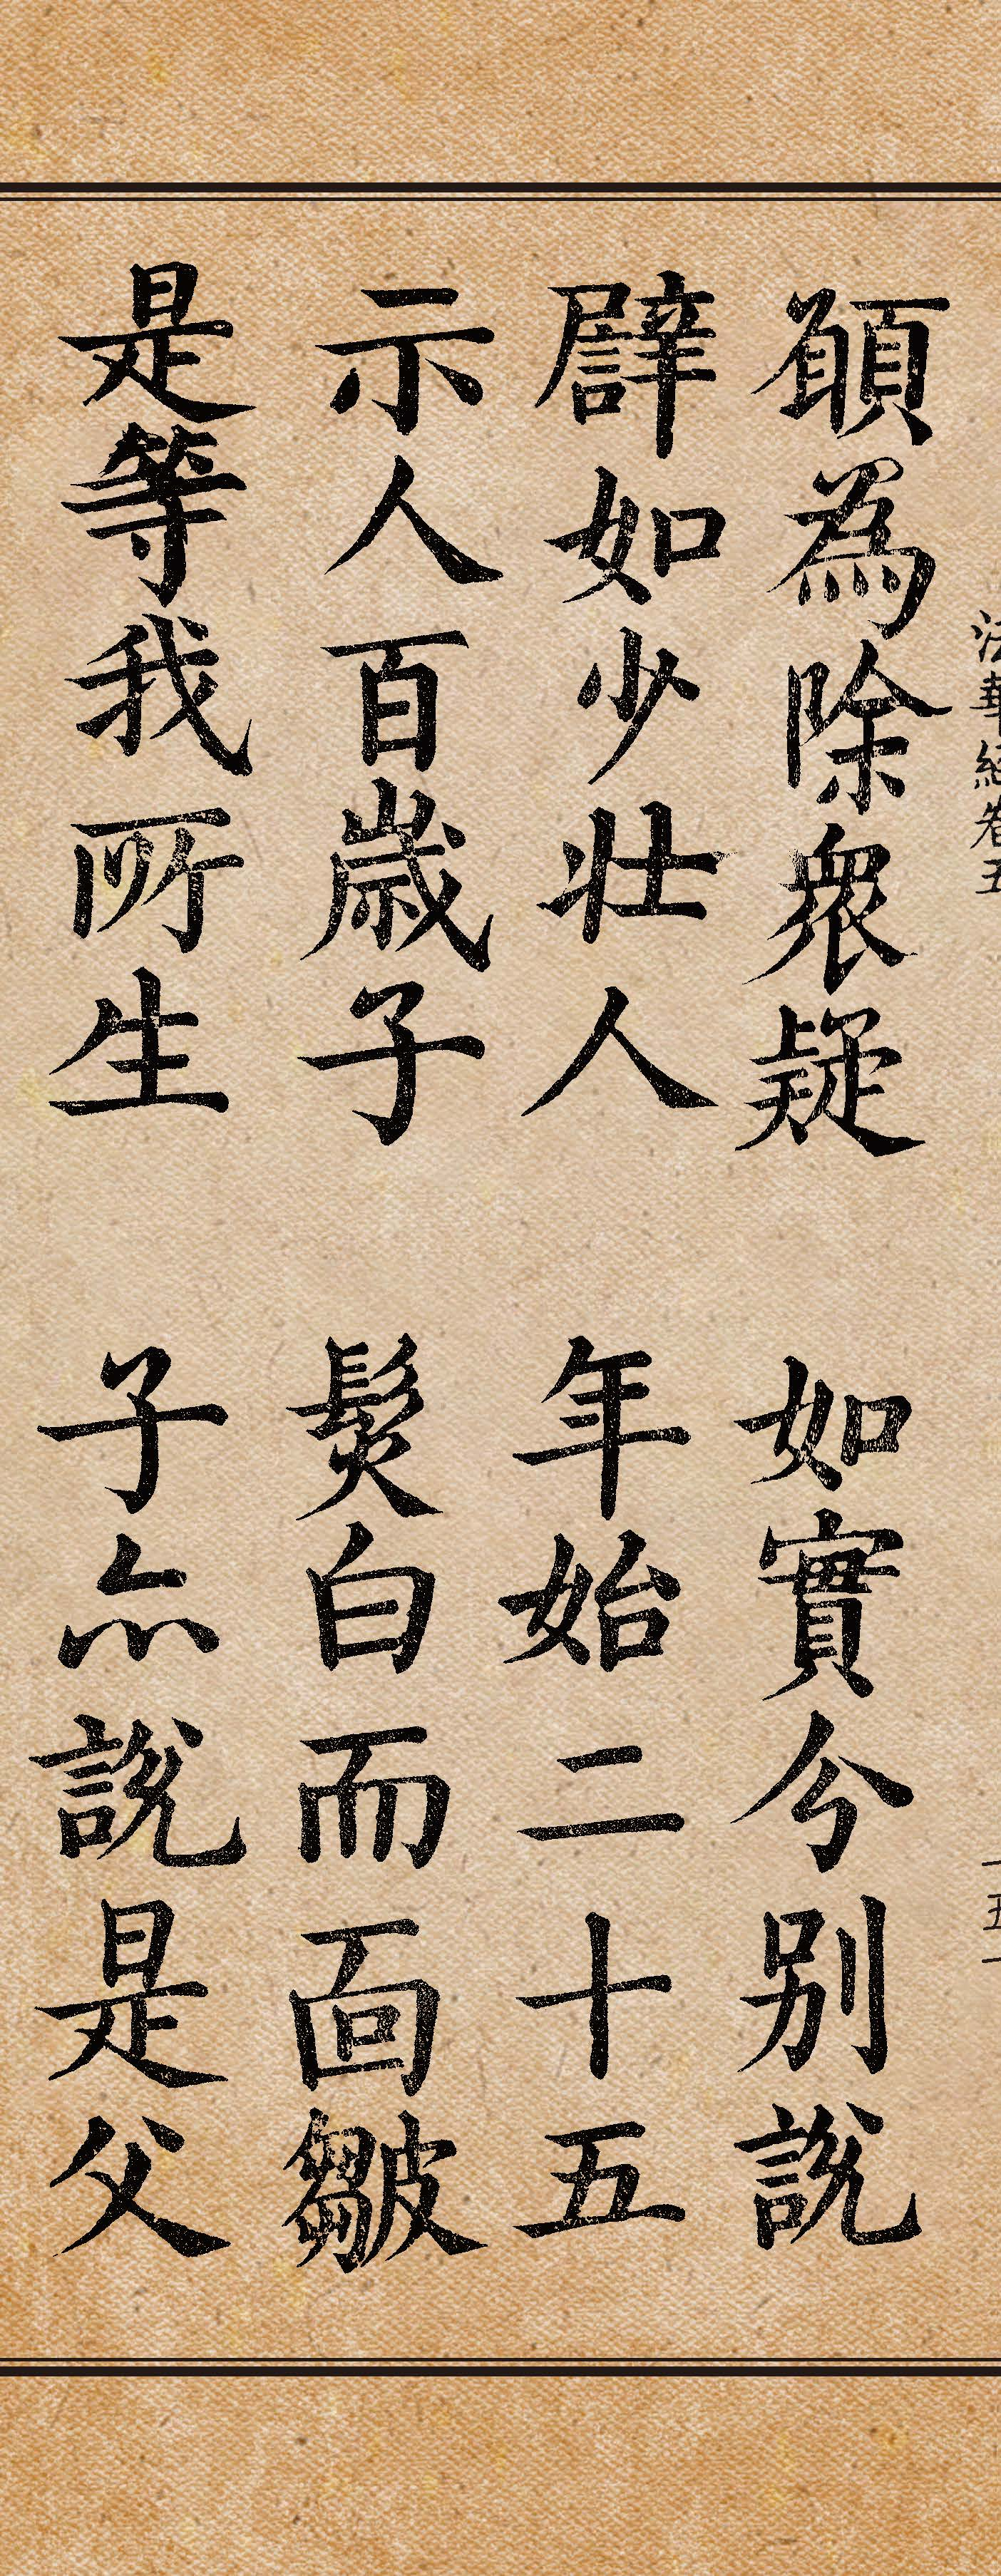 法華經卷五 一五一
願為除衆疑 如實分別說
譬如少壯人 年始二十五
示人百歲子 髮白而面皺
是等我所生 子亦說是父